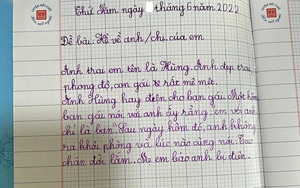 Thứ Tám ngày tháng 6 năm 2022
Đề bài: Kể về anh/chị của em
Anh trai em tên là Hùng. Anh đẹp trai
phong độ, con gái rất mê mẩn.
Anh Hùng hay đến cho bạn gái. Một hôm
bạn gái nói với anh ấy rằng, em với anh
chỉ là bạn. Sau ngày hôm đó, anh không
ra khỏi phòng và lúc nào cũng nói: Tao
chán đời lắm. Mẹ em bảo anh bị điên.